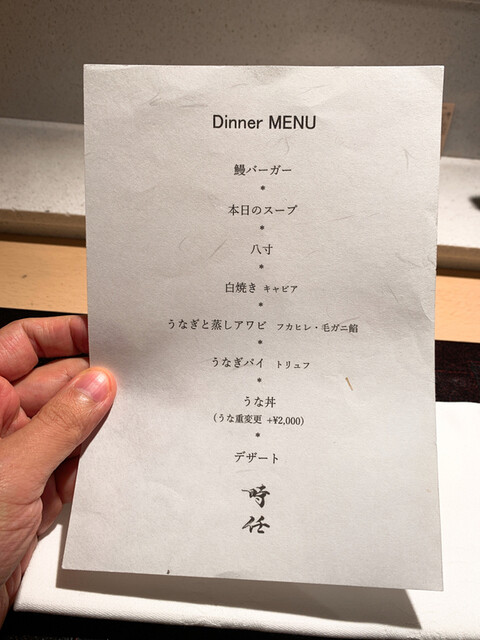 Dinner MENU
鰻バーガー
*
本日のスープ
*
八寸
*
白焼き キャビア
*
うなぎと蒸しアワビ フカヒレ・毛ガニ餡
*
うなぎパイ トリュフ
*
うな丼
(うな重変更 +¥2,000)
*
デザート
時
任